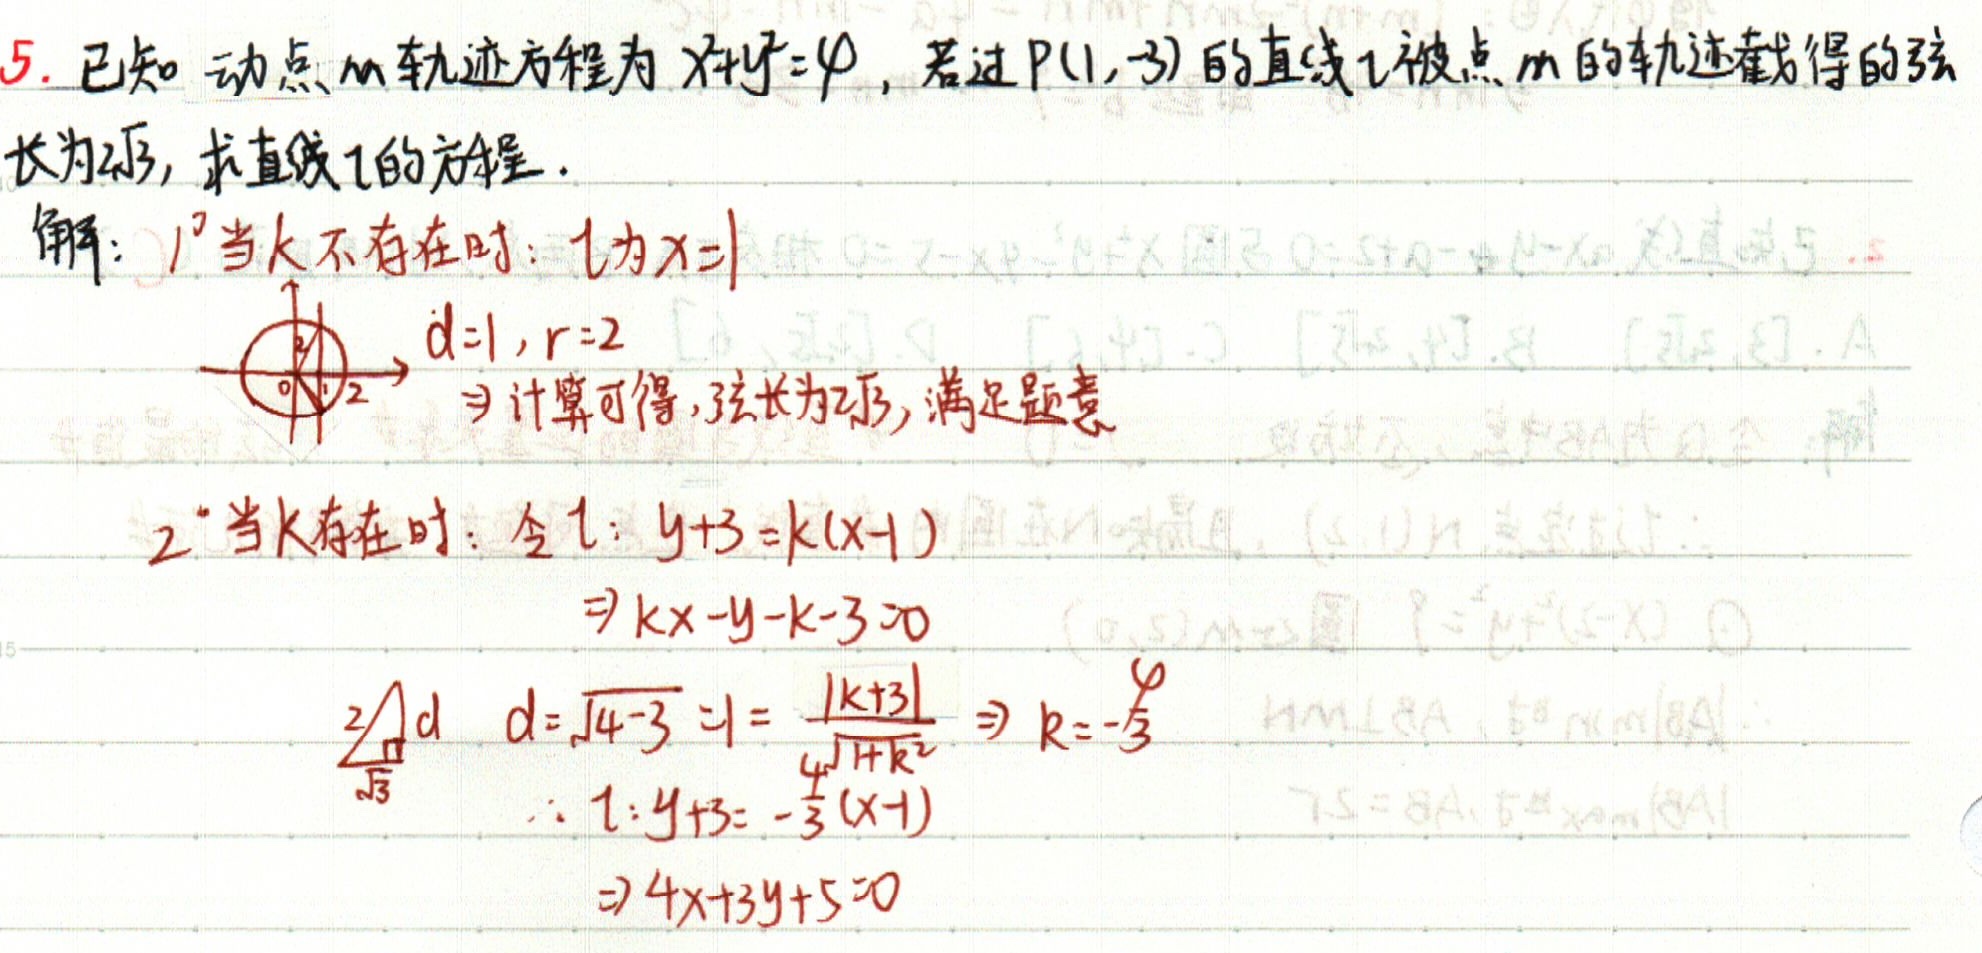 5. 已知 动点 m 轨迹方程为 x²+y²=4, 若过 P(1,-3) 的直线 l 被点 m 的轨迹截得的弦
长为2√3, 求直线 l 的方程.
解: 1° 当 k 不存在时: l 为 x=1
2
0 1 2
d=1, r=2
⇒ 计算可得, 弦长为2√3, 满足题意
2° 当 k 存在时: 令 l: y+3=k(x-1)
⇒ kx-y-k-3=0
2 d √3 d=√(4-3)=1=|k+3|/√(1+k²) ⇒ k=-4/3
∴ l: y+3=-4/3(x-1)
⇒ 4x+3y+5=0